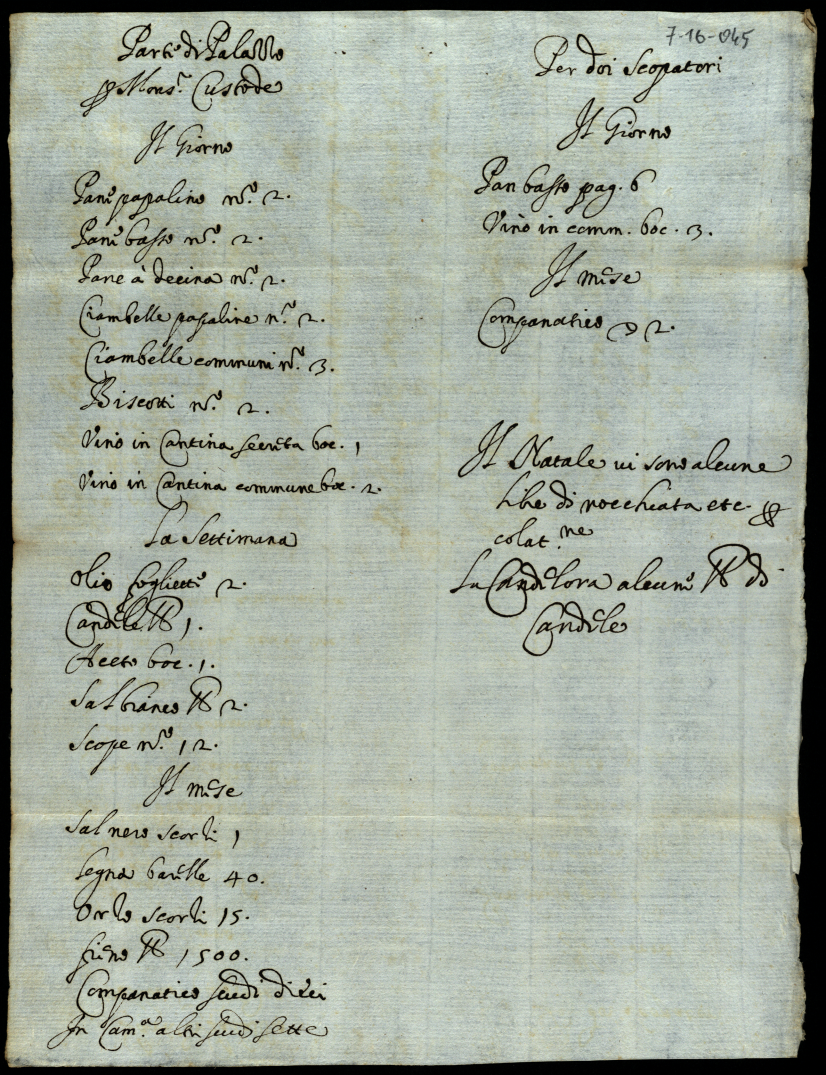 7-16-045
Parte di Palazzo
p Mons.r Custode
Il Giorno
Pane papalino n.o 2.
Pane basso n.o 2.
Pane à decina n.o 2.
Ciambelle papaline n.o 2.
Ciambelle communi n.o 3.
Biscotti n.o 2.
Vino in Cantina secreta boc. 1
Vino in Cantina commune boc. 2.
La Settimana
Olio fogliette 2.
Candele ℔ 1.
Aceto boc. 1.
Sal bianco ℔ 2.
Scope n.o 12.
Il mese
Sal nero scorzi 1
Legna barelle 40.
Orzo scorzi 15.
fieno ℔ 1500.
Companatico scudi dieci
In Cam.a altri scudi sette
Per doi Scopatori
Il Giorno
Pan basso pag. 6
Vino in comm. boc. 3.
Il mese
Companatico 2.
Il Natale vi sono alcune
libe di nocchiata etc. &
colat.ne
La Candelora alcune ℔ di
Candele